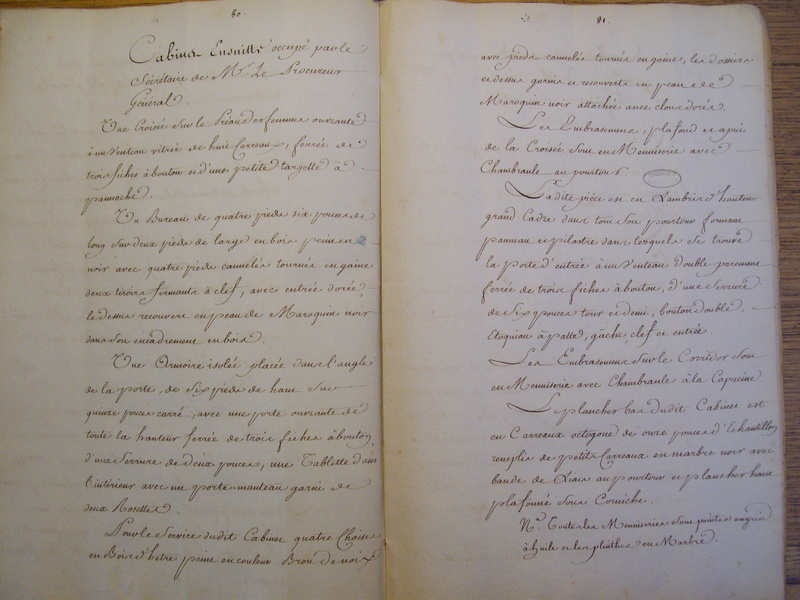 80.
Cabinet Ensuitte occupé par le
Secrétaire de Mr. Le Procureur
Général.
Une Croisée sur le Préau des femmes ouvrante
à un Venteau vitrée de huit Carreaux, ferrée de
trois fiches à bouton et d'une petite targette à
pannache.
Un Bureau de quatre pieds six pouces de
long sur deux pieds de large en bois peint en
noir avec quatre pieds cannelés tournés en gaine
deux tiroirs fermants à clef, avec entrée dorée,
le dessus recouvert en peau de Maroquin noir
dans son encadrement en bois.
Une Armoire isolée placée dans l'angle
de la porte, de six pieds de haut sur
quinze pouces carré, avec une porte ouvrante de
toute la hauteur ferrée de trois fiches à bouton,
d'une serrure de deux pouces, une Tablette dans
l'intérieur avec un porte-manteau garni de
deux Rosettes.
Pour le Service dudit Cabinet quatre Chaises
en Bois d'hetre peint en couleur Brou de noix
81.
avec pieds cannelés tournés en gaine, les dossiers
et dessus garnis et recouverts en peau de
Maroquin noir attachée avec clous dorés.
Les Embrasemens, plafond et apui
de la Croisée sont en Menuiserie avec
Chambranle au pourtour.
Ladite pièce est en Lambris d'hauteur
grand Cadre dans tout son pourtour formant
panneau et pilastre dans lesquels se trouve
la porte d'entrée à un Venteau double parement
ferrée de trois fiches à bouton, d'une Serrure
de six pouces tour et demi, bouton double,
Etoquiau à patte, gâche, clef et entrée.
Les Embrasemens sur le Corridor sont
en Menuiserie avec Chambranle à la Capucine.
Le plancher bas dudit Cabinet est
en Carreaux octogone de onze pouces d'Echantillon
remplis de petits Carreaux en marbre noir avec
bande de Liais au pourtour et plancher haut
plafonné sans Corniche.
Na. Toutes les Menuiseries sont peintes en gris
à huile et les plinthes en Marbre.